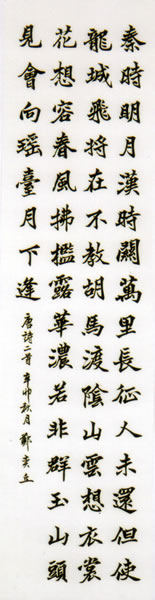 秦時明月漢時關萬里長征人未還但使
龍城飛將在不教胡馬渡陰山雲想衣裳
花想容春風拂檻露華濃若非群玉山頭
見會向瑤臺月下逢
唐詩二首 辛卯秋月 鄭奕立